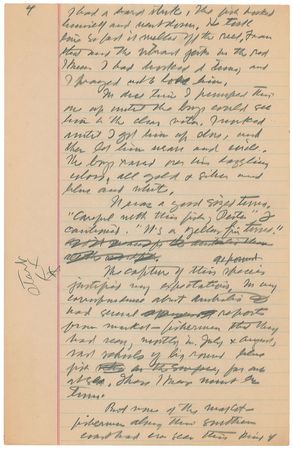 4
I had a hard strike. The fish hooked
himself and went down. He took
line so fast it melted off the reel. From
that and the vibrant jerks on the rod
I knew I had hooked a tuna, and
I prayed not to lose him.
In due time I pumped this
one up until the boys could see
him in the clear water. I worked
until I got him up close, and
then let him wear and circle.
The boys raved over his dazzling
colors, all gold & silver and
blue and white.
It was a good sized tuna.
"Careful with this fish, Peter" I
cautioned. "It's a yellow fin tuna."
The capture of this species
justified my expectations. In my
correspondence about Australia
had several reports
from market-fishermen that they
had seen, mostly in July & August,
vast schools of big round blue
fish on the surface, far out
at sea. These I knew must be
tuna.
But none of the market
fishermen along this southern
coast had ever seen this kind of